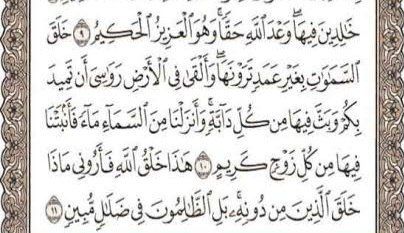 خَٰلِدِينَ فِيهَاۖ وَعۡدَ ٱللَّهِ حَقّٗاۚ وَهُوَ ٱلۡعَزِيزُ ٱلۡحَكِيمُ ٩ خَلَقَ
ٱلسَّمَٰوَٰتِ بِغَيۡرِ عَمَدٖ تَرَوۡنَهَاۖ وَأَلۡقَىٰ فِي ٱلۡأَرۡضِ رَوَٰسِيَ أَن تَمِيدَ
بِكُمۡ وَبَثَّ فِيهَا مِن كُلِّ دَآبَّةٖۚ وَأَنزَلۡنَا مِنَ ٱلسَّمَآءِ مَآءٗ فَأَنۢبَتۡنَا
فِيهَا مِن كُلِّ زَوۡجٖ كَرِيمٍ ١٠ هَٰذَا خَلۡقُ ٱللَّهِ فَأَرُونِي مَاذَا
خَلَقَ ٱلَّذِينَ مِن دُونِهِۦۚ بَلِ ٱلظَّٰلِمُونَ فِي ضَلَٰلٖ مُّبِينٖ ١١